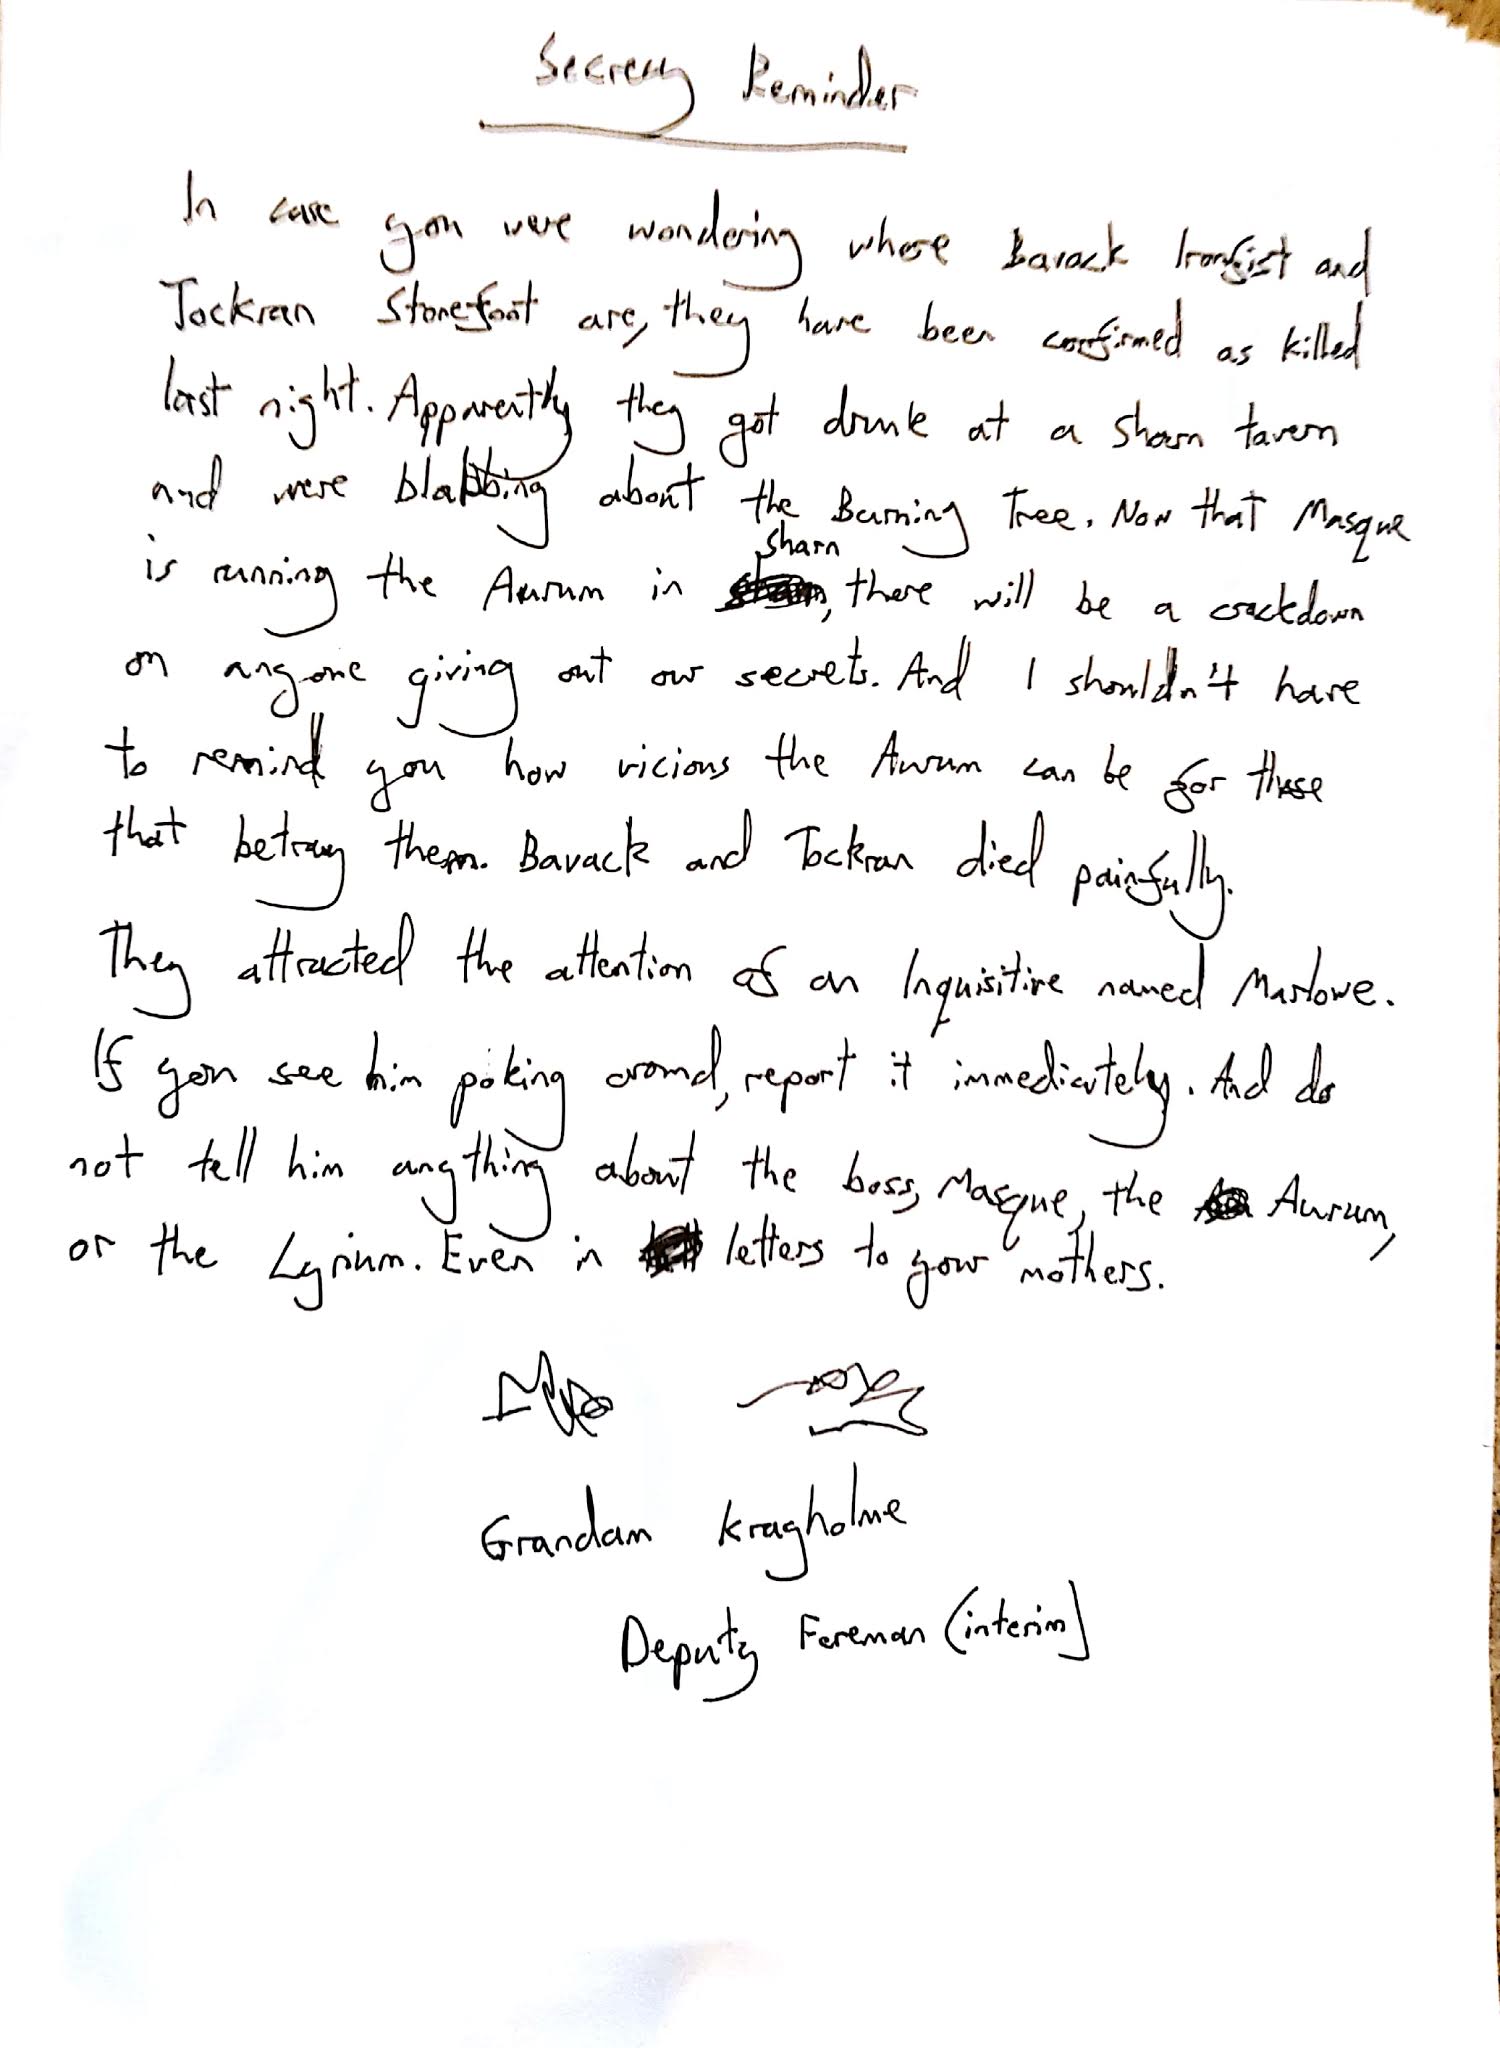 Secrecy Reminder
In case you were wondering where Barack Ironfist and
Tockran Stonefoot are, they have been confirmed as killed
last night. Apparently they got drunk at a Sharn tavern
and were blabbing about the Burning Tree. Now that Masque
Sharn
is running the Aurum in , there will be a crackdown
on anyone giving out our secrets. And I shouldn't have
to remind you how vicious the Aurum can be for those
that betray them. Barack and Tockran died painfully.
They attracted the attention of an Inquisitive named Marlowe.
If you see him poking around, report it immediately. And do
not tell him anything about the boss, Masque, the Aurum,
or the Lyrium. Even in letters to your mothers.
Grandam Kragholme
Deputy Foreman (interim)